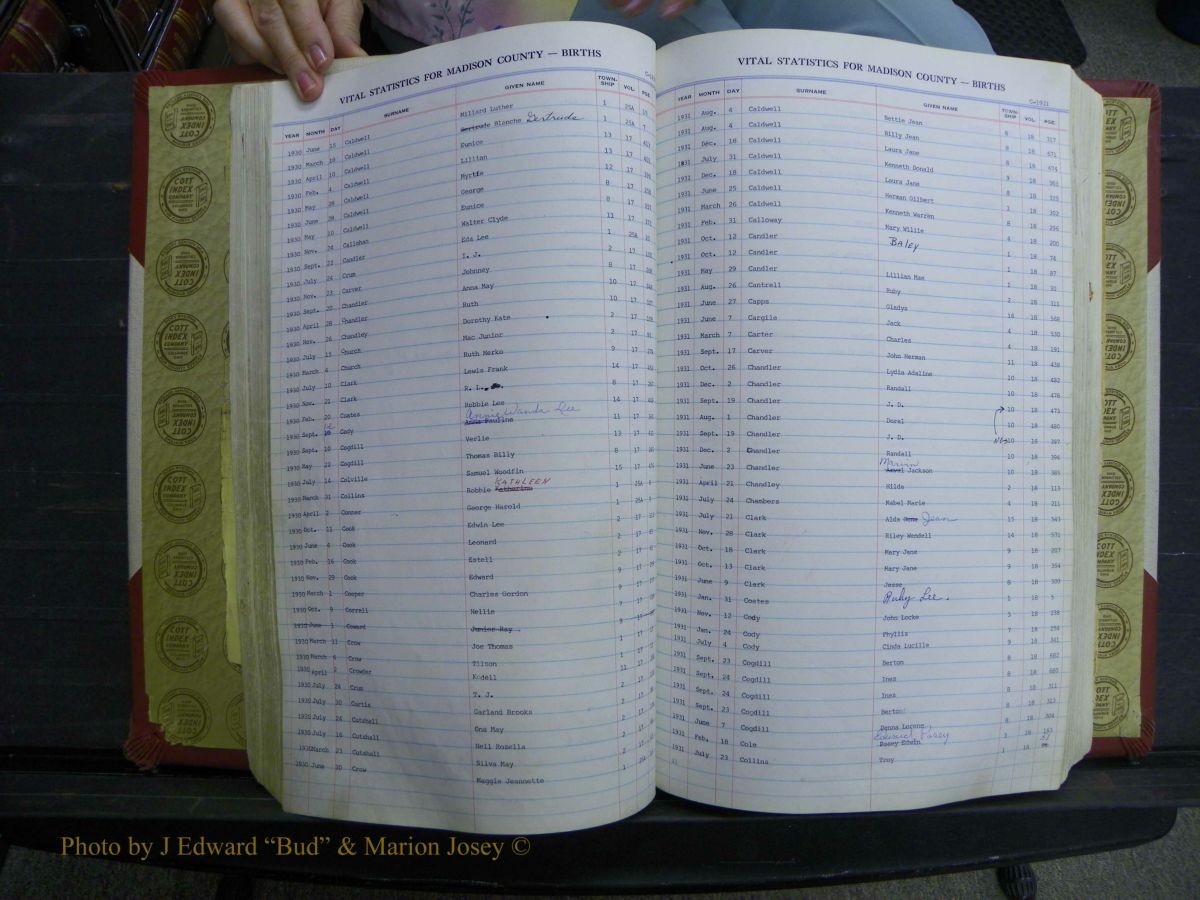 VITAL STATISTICS FOR MADISON COUNTY — BIRTHS
YEAR MONTH DAY SURNAME GIVEN NAME TOWN-SHIP VOL. PGE
1930 June 15 Caldwell Millard Luther 1 25A
1930 March 10 Caldwell Gertrude Blanche Gertrude 1 25A
1930 April 10 Caldwell Eunice 13 17
1930 Feb. 4 Caldwell Lillian 13 17
1930 May 28 Caldwell Myrtle 12 17
1930 June 28 Caldwell George 8 17
1930 May 10 Caldwell Eunice 8 17
1930 Nov. 24 Callahan Walter Clyde 11 17
1930 Sept. 22 Candler Eda Lee 1 25A
1930 July 24 Crum T. J. 2 17
1930 Nov. 23 Carver Johnney 8 17
1930 Sept. 20 Chandler Anna May 10 17
1930 April 28 Chandler Ruth 10 17
1930 Nov. 26 Chandley Dorothy Kate 2 17
1930 July 13 Church Mac Junior 2 17
1930 March 4 Church Ruth Merko 9 17
1930 July 10 Clark Lewis Frank 14 17
1930 Nov. 21 Clark R. L. 8 17
1930 Feb. 20 Coates Robbie Lee 14 17
1930 Sept. 12 Cody Annie Wanda Lee Anna Pauline 11 17
1930 Sept. 10 Cogdill Verlie 13 17
1930 May 22 Cogdill Thomas Billy 8 17
1930 July 14 Colville Samuel Woodfin 15 17
1930 March 31 Collins Robbie Katherine KATHLEEN 1 25A
1930 April 2 Conner George Harold 1 25A
1930 Oct. 11 Cook Edwin Lee 2 17
1930 June 4 Cook Leonard 2 17
1930 Feb. 16 Cook Estell 2 17
1930 Nov. 29 Cook Edward 9 17
1930 March 1 Cooper Charles Gordon 9 17
1930 Dec. 9 Correll Nellie 7 17
1930 June 1 Coward Junior Ray 9 17
1930 March 11 Crow Joe Thomas 1 17
1930 March 6 Crow Tilson 1 17
1930 April 2 Crowder Kodell 11 17
1930 July 24 Crum T. J. 2 17
1930 July 30 Curtis Garland Brooks 2 17
1930 July 24 Cutshall Ona May 2 17
1930 July 16 Cutshall Nell Rozella 2 17
1930 March 23 Cutshall Silva May 2 17
1930 June 30 Crow Maggie Jeannette 1 25A
VITAL STATISTICS FOR MADISON COUNTY — BIRTHS
C-1931
YEAR MONTH DAY SURNAME GIVEN NAME TOWN-SHIP VOL PGE
1931 Aug. 4 Caldwell Bettie Jean 8 18 317
1931 Aug. 4 Caldwell Billy Jean 8 18 671
1931 Dec. 18 Caldwell Laura Jane 8 18 674
1931 July 31 Caldwell Kenneth Donald 9 18 361
1931 Dec. 18 Caldwell Laura Jane 8 18 325
1931 June 25 Caldwell Herman Gilbert 1 18 302
1931 March 26 Caldwell Kenneth Warren 8 18 296
1931 Feb. 31 Calloway Mary Willie 4 18 200
1931 Oct. 12 Candler BALEY 1 18 74
1931 Oct. 12 Candler 1 18 87
1931 May 29 Candler Lillian Mae 1 18 30
1931 Aug. 26 Cantrell Ruby 2 18 311
1931 June 27 Capps Gladys 16 18 568
1931 June 7 Cargile Jack 4 18 530
1931 March 7 Carter Charles 4 18 191
1931 Sept. 17 Carver John Herman 11 18 438
1931 Oct. 26 Chandler Lydia Adaline 10 18 482
1931 Dec. 2 Chandler Randall 10 18 478
1931 Sept. 19 Chandler J. D. 10 18 473
1931 Aug. 1 Chandler Doral 10 18 480
1931 Sept. 19 Chandler J. D. 10 18 397
1931 Dec. 2 Chandler Randall 10 18 396
1931 June 23 Chandler Marvin Jackson 10 18 385
1931 April 21 Chandley Hilda 2 18 113
1931 July 24 Chambers Mabel Marie 4 18 211
1931 July 21 Clark Alda Gene Jean 15 18 543
1931 Nov. 28 Clark Riley Wendell 14 18 571
1931 Oct. 18 Clark Mary Jane 9 18 207
1931 Oct. 13 Clark Mary Jane 9 18 394
1931 June 9 Clark Jesse 8 18 300
1931 Jan. 31 Coates Ruby Lee. 1 18 5
1931 Nov. 12 Cody John Locke 5 18 238
1931 Jan. 24 Cody Phyllis 7 18 254
1931 July 4 Cody Cinda Lucille 9 18 341
1931 Sept. 23 Cogdill Berton 8 18 682
1931 Sept. 24 Cogdill Inez 8 18 680
1931 Sept. 24 Cogdill Inez 8 18 311
1931 Sept. 23 Cogdill Berton 8 18 313
1931 June 7 Cogdill Donna Lorenz 8 18 304
1931 Feb. 18 Cole Edward Posey Posey Edwin 3 18 163
1931 July 23 Collins Troy 1 18
COTT INDEX COMPANY COLUMBUS OHIO
Photo by J Edward “Bud” & Marion Josey ©